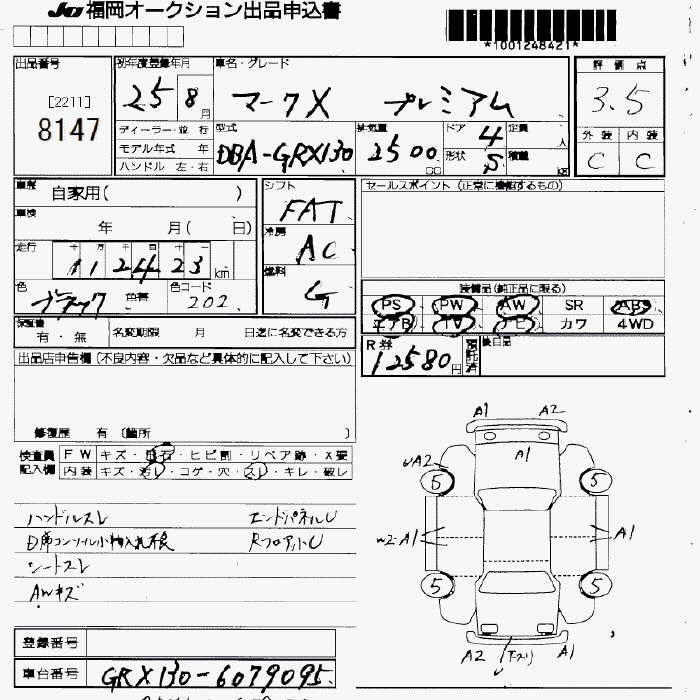 JU福岡オークション出品申込書
*1001248421*
出品番号
[2211]
8147
初年度登録年月
25 8月
車名・グレード
マークX プレミアム
評価点
3.5
ディーラー・並行
モデル年式 年
ハンドル 左・右
型式
DBA-GRX130
排気量
2500
CC
ドア
4
形状
S
定員
人
積載
kg
外装 内装
C C
車歴
自家用( )
車検
年 月( 日)
走行
十 万 千 百 十 一
112423 km
色
ブラック
色替
色コード
202
シフト
FAT
冷房
AC
燃料
G
セールスポイント (正常に機能するもの)
装備品(純正品に限る)
PS PW AW SR ABS
エアB TV ナビ カワ 4WD
有・無
名変期限 月 日迄に名変できる方
R券
12580円
預託済
後日品
出品店申告欄 (不良内容・欠品など具体的に記入して下さい)
修復歴 有 〔箇所 〕
検査員記入欄
FW キズ・飛石・ヒビ割・リペア跡・X要
内装 キズ・汚れ・コゲ・穴・スレ・キレ・破レ
ハンドルスレ エンドパネルU
D席コンソール小物入れ不良 RフロアットU
シートスレ
AWキズ
登録番号
車台番号 GRX130-6079095
A1 A2
A1
UA2
5 5
W2 A1 A1
5 5
A2 A1
U